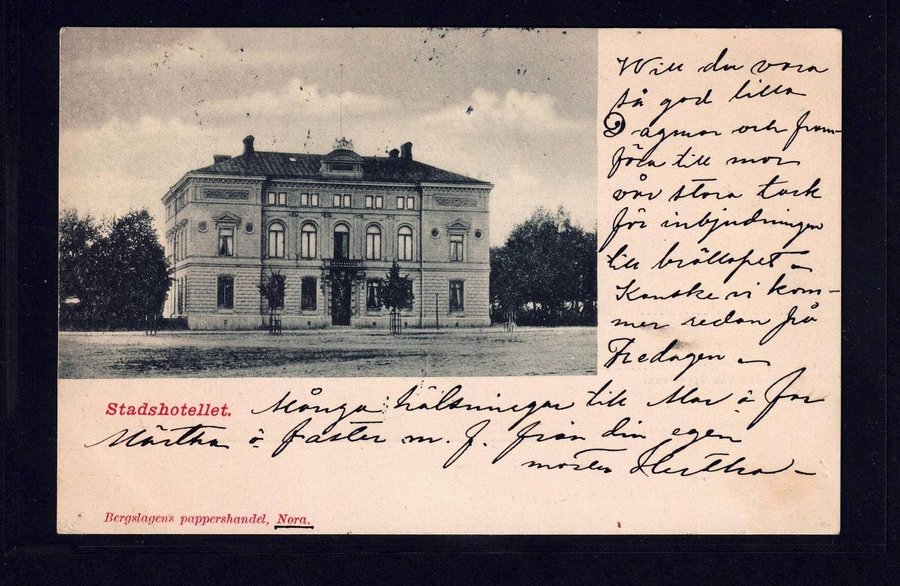 Will du vara
så god lilla
Dagmar och fram-
föra till mor
vår stora tack
för inbjudningen
till bröllopet –
Kanske vi kom-
mer redan på
Fredagen –
Stadshotellet.
Många hälsningar till Mor å far
Märtha å faster m. fl. från din egen
moster Hertha –
Bergslagens pappershandel, Nora.